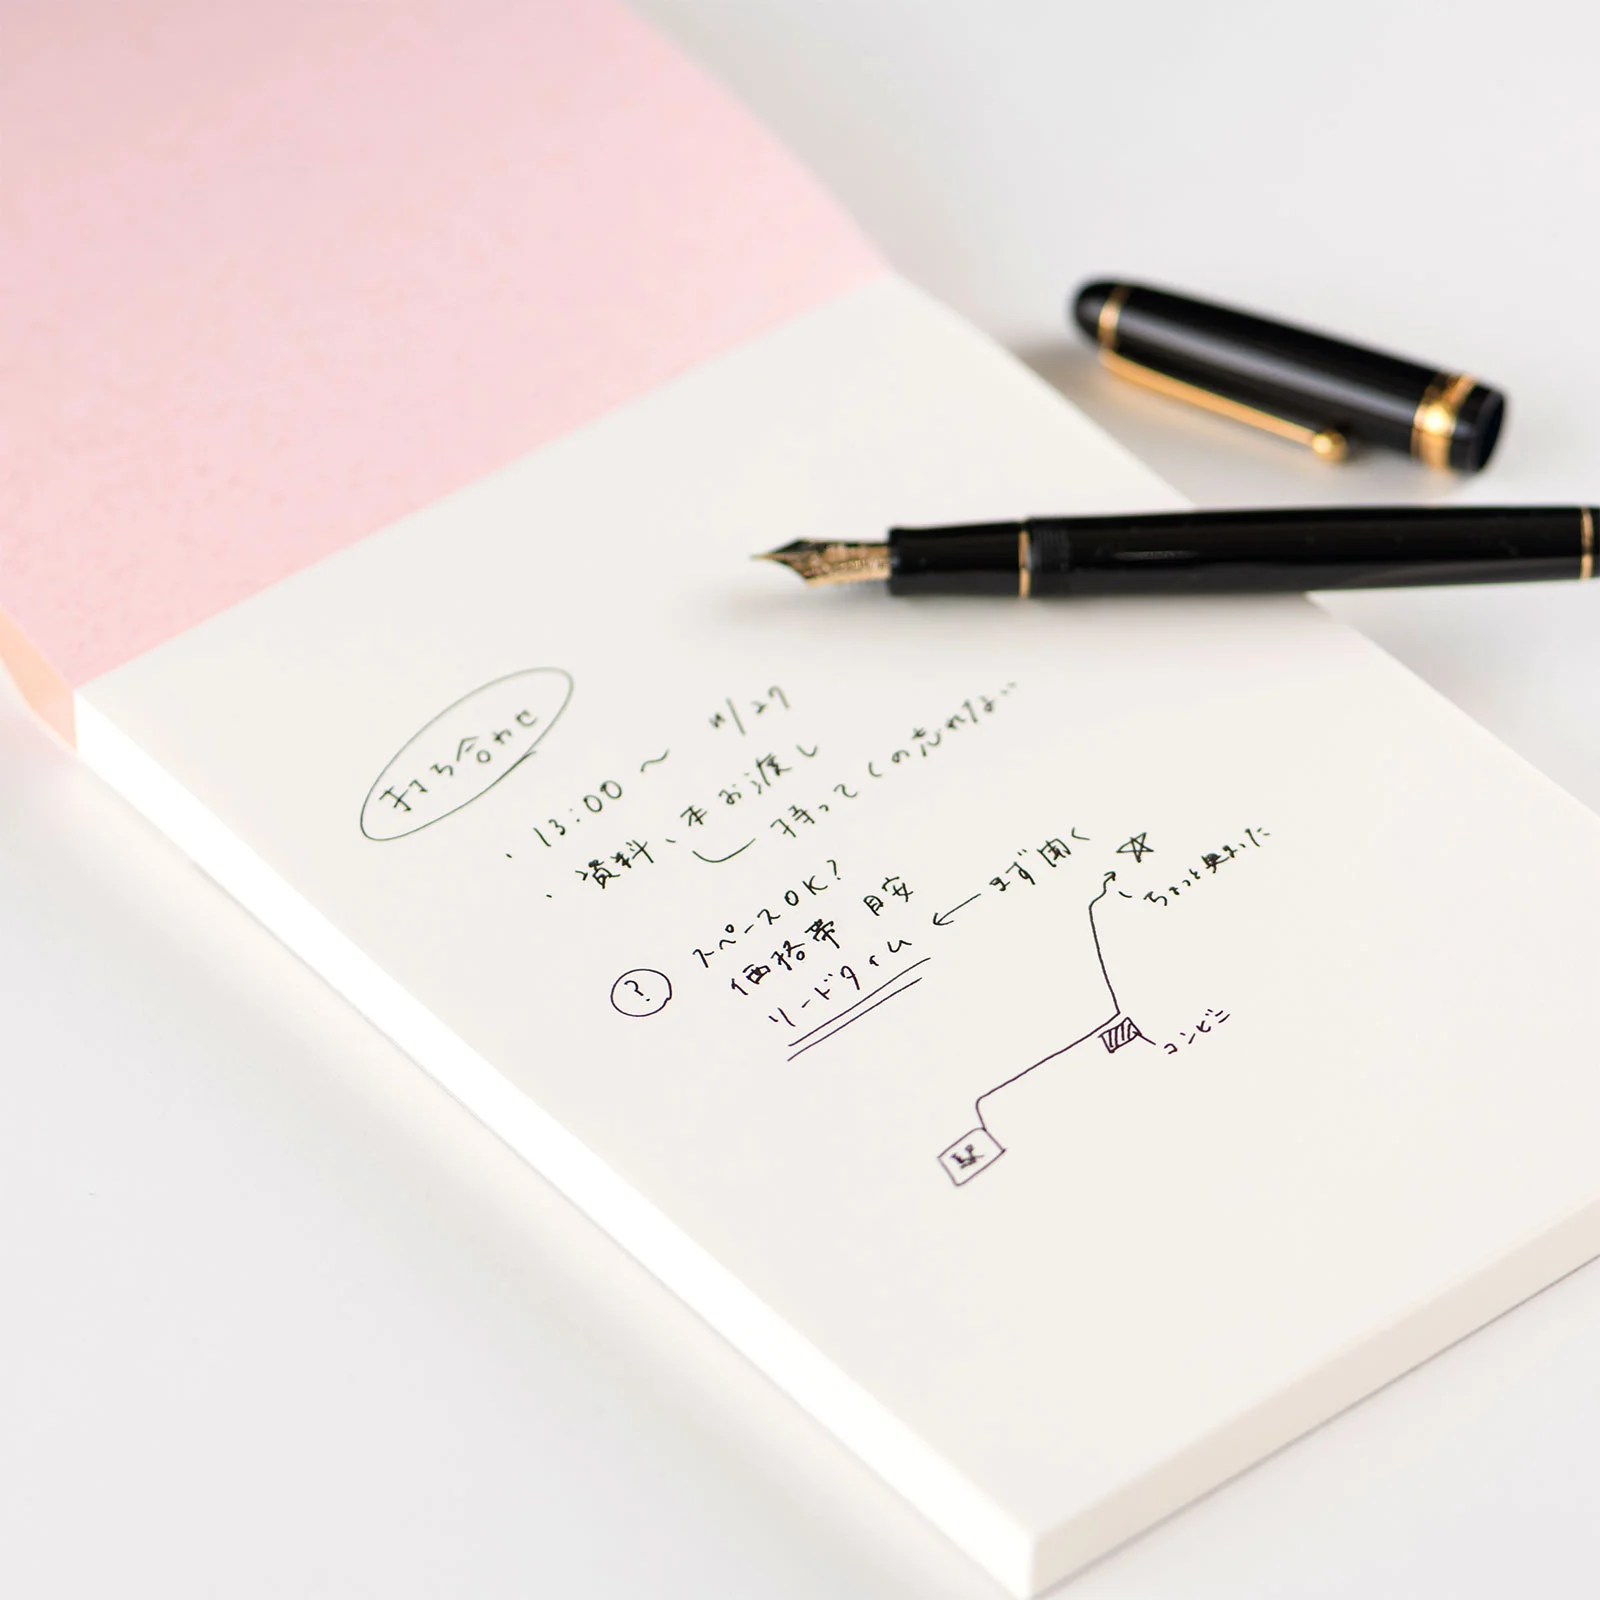 打ち合わせ
・13:00〜 11/27
・資料、本お渡し
持ってくの忘れない
? スペースOK?
価格帯 目安
リードタイム ← まず聞く
ちょっと奥まった
コンビニ
駅